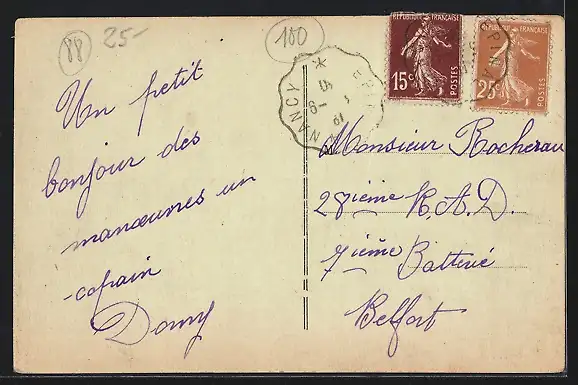 88 25-
100
Un petit
bonjour des
manœuvres un
-copain
Domy
NANCY
RÉPUBLIQUE FRANÇAISE
15c
POSTES
RÉPUBLIQUE FRANÇAISE
25c
POSTES
Monsieur Rocherau
28ieme R.A.D.
7ieme Batterie
Belfort